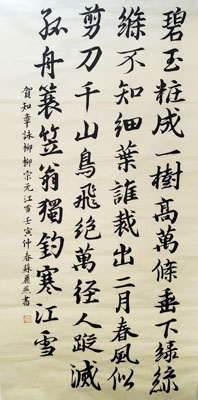 碧玉粧成一樹高萬條垂下绿絲
絛不知細葉誰裁出二月春風似
剪刀千山鳥飛絕萬径人蹤滅
孤舟蓑笠翁獨釣寒江雪
賀知章詠柳柳宗元江雪壬寅仲春蘇燕書